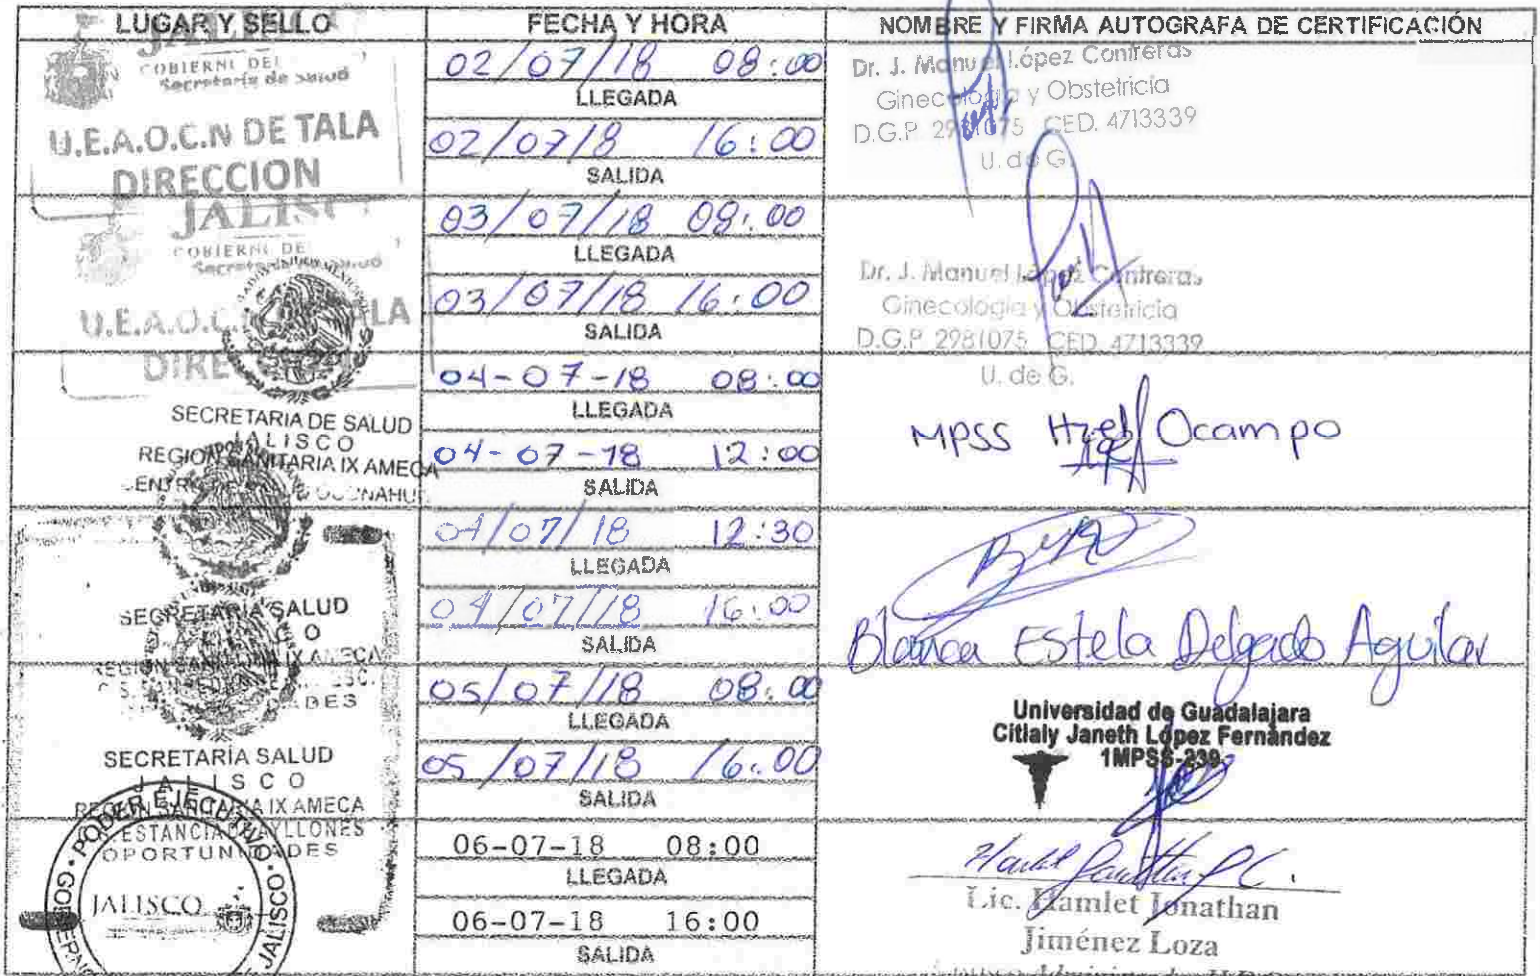 LUGAR Y SELLO
FECHA Y HORA
NOMBRE Y FIRMA AUTOGRAFA DE CERTIFICACIÓN
JALISCO
GOBIERNO DEL
Secretaría de Salud
U.E.A.O.C.N DE TALA
DIRECCION
02/07/18 08:00
LLEGADA
02/07/18 16:00
SALIDA
Dr. J. Manuel López Contreras
Ginecología y Obstetricia
D.G.P 2981075 CED. 4713339
U. de G.
JALISCO
GOBIERNO DE
Secretaría de Salud
U.E.A.O.C. TALA
DIRE
03/07/18 08:00
LLEGADA
03/07/18 16:00
SALIDA
Dr. J. Manuel López Contreras
Ginecología y Obstetricia
D.G.P. 2981075 CED. 4713339
U. de G.
SECRETARIA DE SALUD
JALISCO
REGION SANITARIA IX AMECA
04-07-18 08:00
LLEGADA
04-07-18 12:00
SALIDA
MPSS Ocampo
SECRETARIA SALUD
REGION SANITARIA IX AMECA
04/07/18 12:30
LLEGADA
04/07/18 16:00
SALIDA
Blanca Estela Delgado Aguilar
SECRETARÍA SALUD
JALISCO
REGION SANITARIA IX AMECA
ESTANCIA AYLLONES
OPORTUNIDADES
05/07/18 08:00
LLEGADA
05/07/18 16:00
SALIDA
Universidad de Guadalajara
Citlaly Janeth López Fernández
1MPSS-239
PODER EJECUTIVO
JALISCO
JALISCO
06-07-18 08:00
LLEGADA
06-07-18 16:00
SALIDA
Lic. Hamlet Jonathan
Jiménez Loza